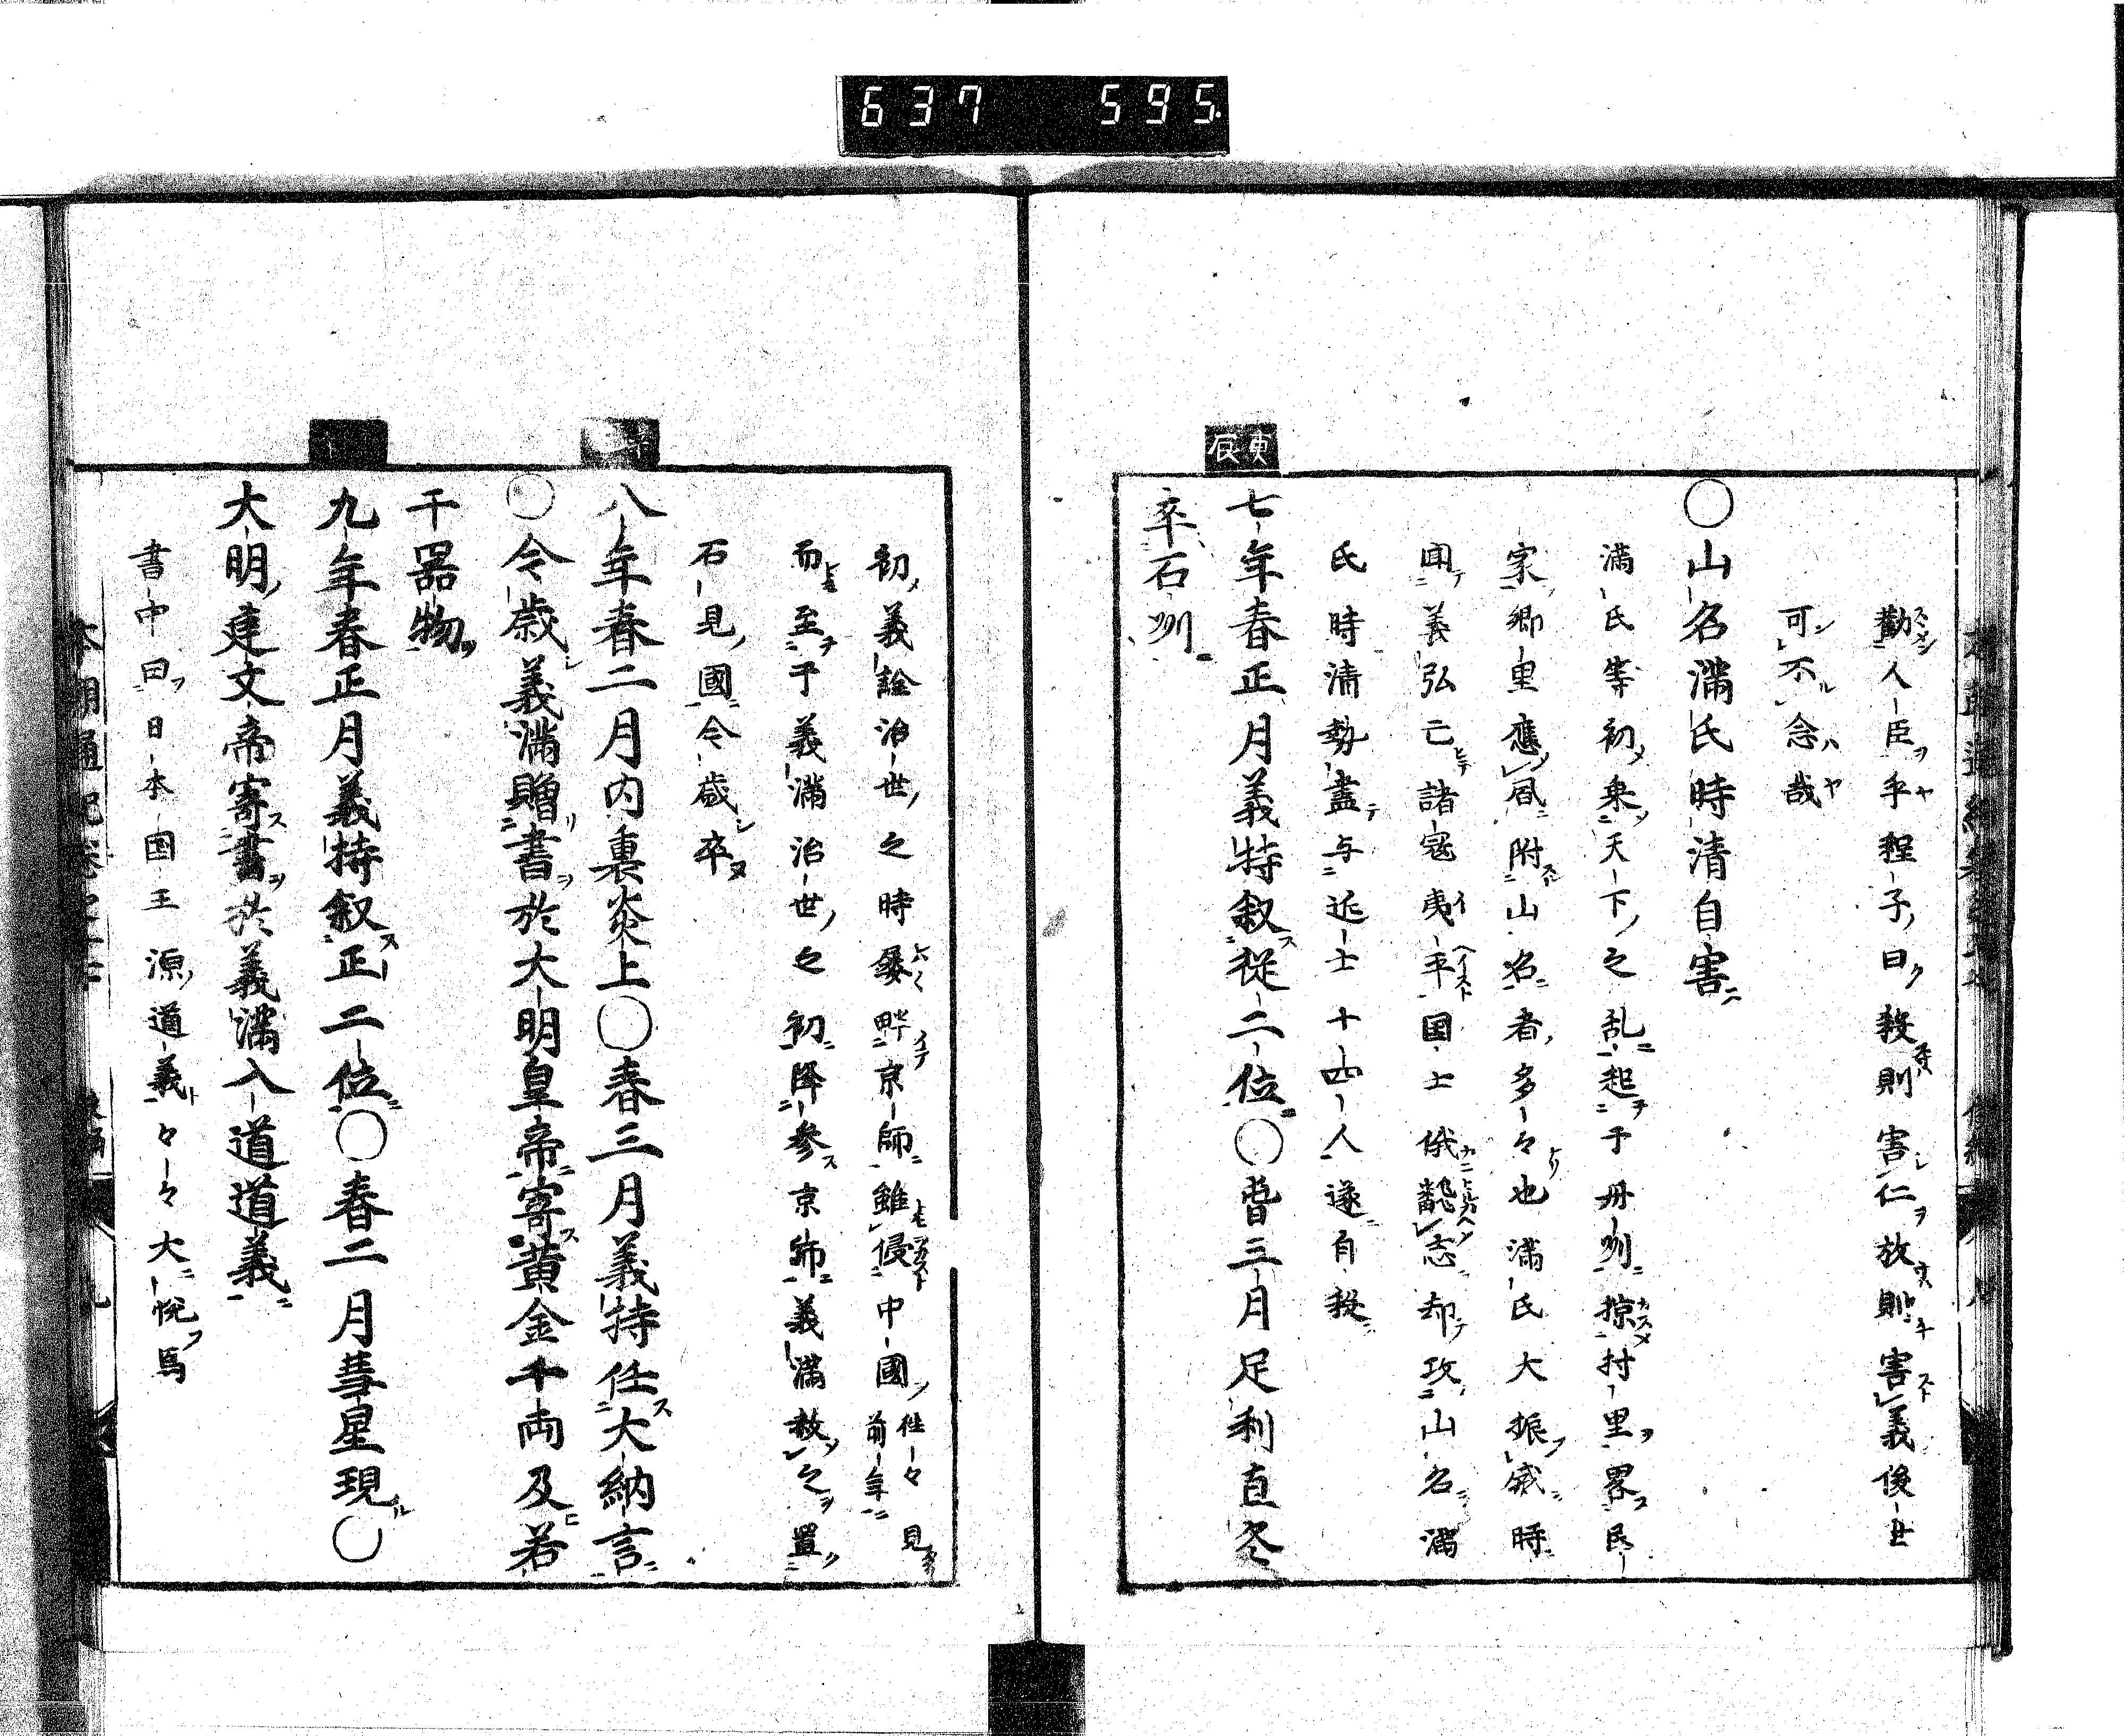 637 595.
勸人臣乎程子曰殺則害仁放則害義後世
可不念哉
○山名滿氏時清自害
滿氏等初乗天下之乱起于丹州掠村里畧民
家郷里應風附山名者多々也滿氏大振威時
聞義弘亡諸寇夷平国士俄飜志却攻山名滿
氏時清勢盡与近士十四人遂自殺
庚辰
七年春正月義持叙從二位○曽三月足利直冬
卒石州
初義詮治世之時屡畔京師雖侵中國往々見前年
而至于義滿治世之初降参京師義滿赦之置
石見國今歳卒
八年春二月内裏炎上○春三月義持任大納言
○今歳義滿贈書於大明皇帝寄黄金千両及若
干器物
九年春正月義持叙正二位○春二月彗星現○
大明建文帝寄書於義滿入道道義
書中曰日本国王源道義々々大悦馬
本朝通紀巻